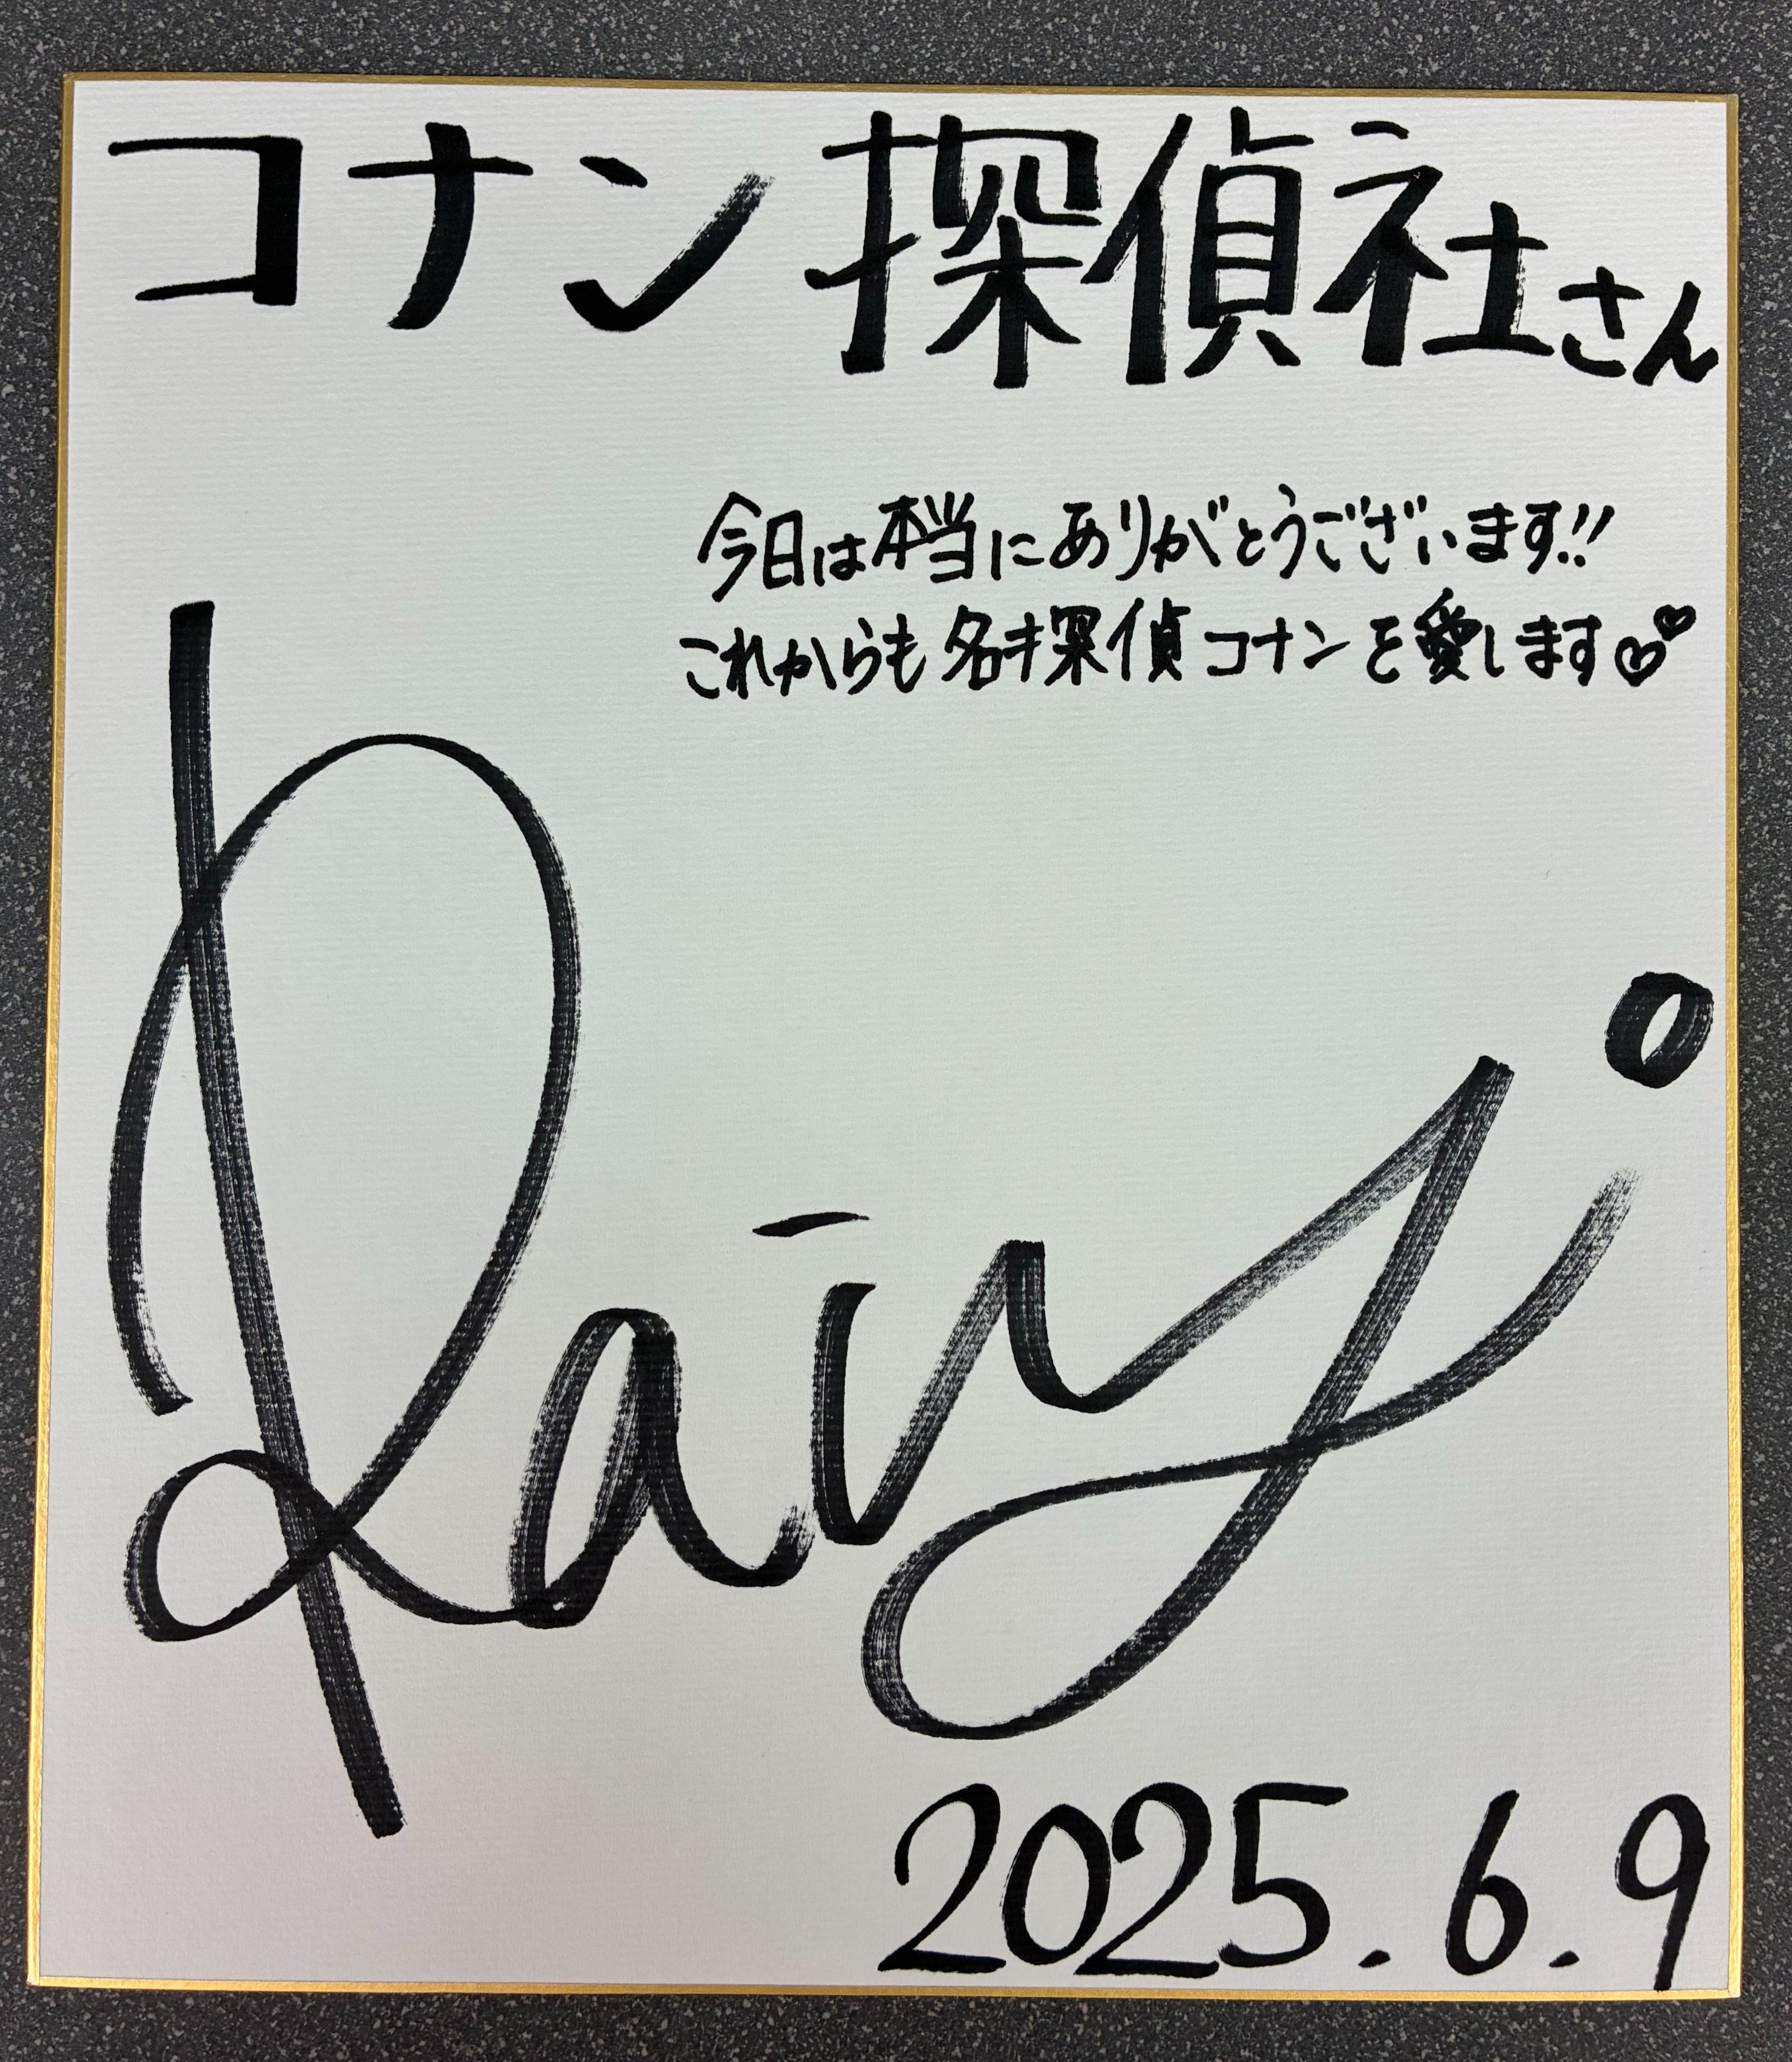 コナン探偵社さん
今日は本当にありがとうございます!!
これからも名探偵コナンを愛します♡♡
Rainy。
2025.6.9